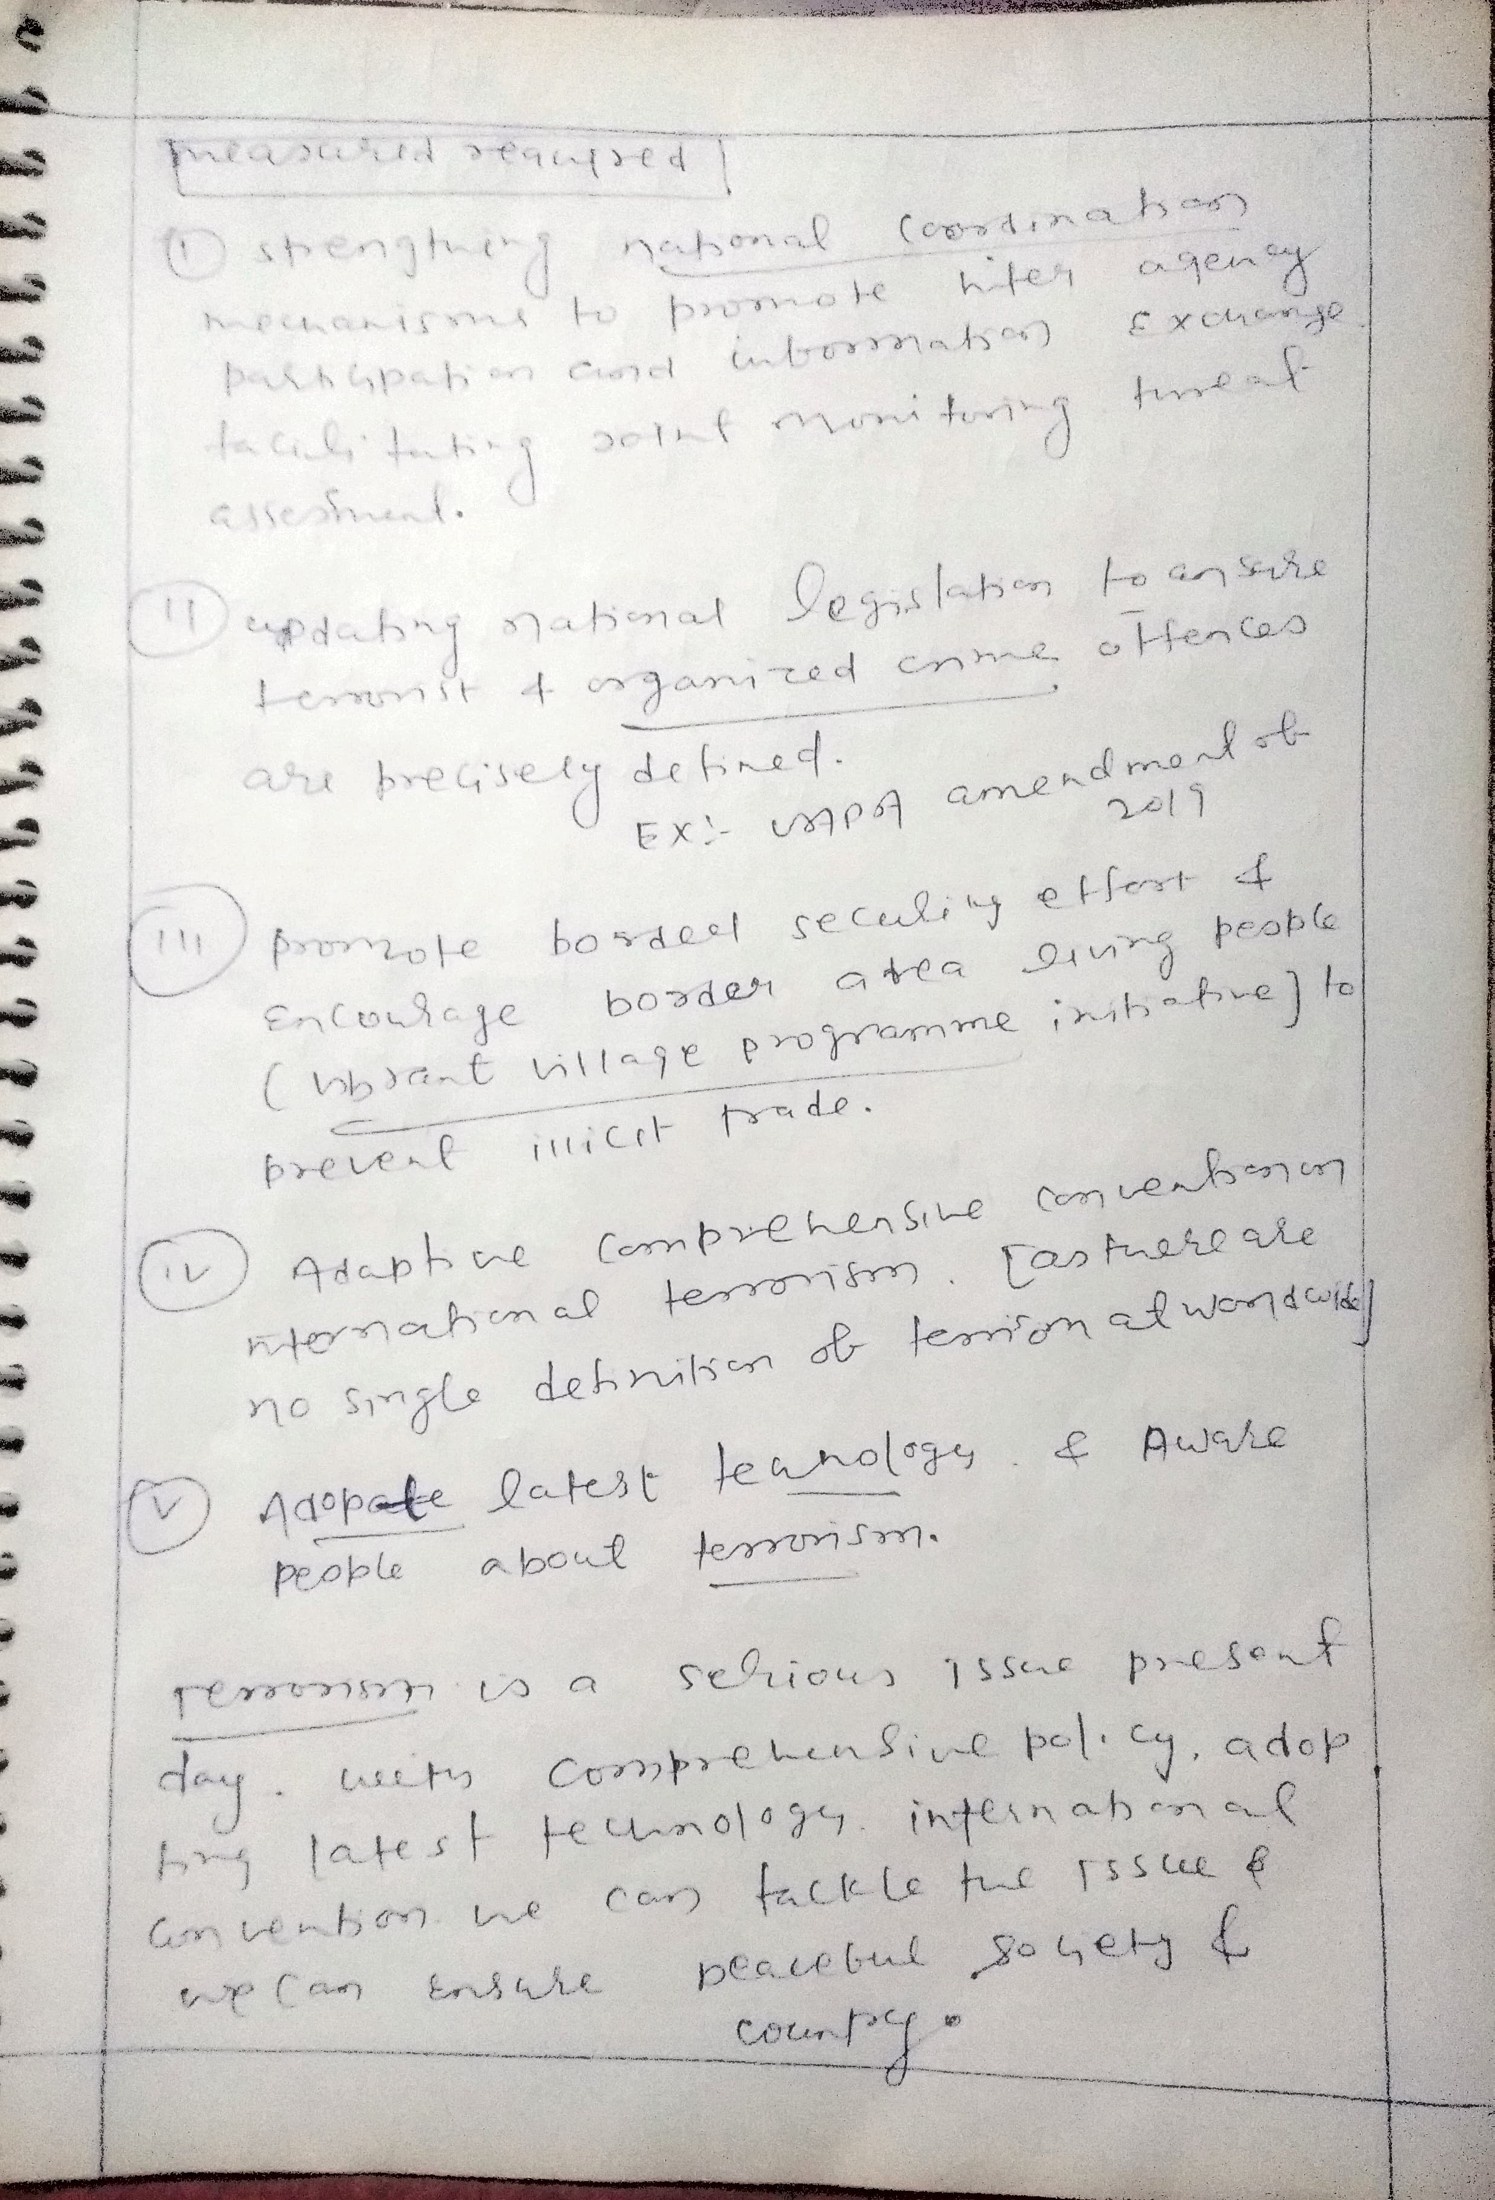 measured required
(I) strengthing national coordination
mechanisms to promote inter agency
participation and information Exchange
facilitating joint monitoring threat
assesment.
(II) updating national legislation to ensure
terrorist & organized crime offences
are precisely defined.
EX:- UAPA amendment of
2019
(III) promote border security effort &
Encourage border area living people
(vibrant village programme initiative] to
prevent illicit trade.
(IV) Adaptive comprehensive convention on
international terrorism. [as there are
no single definition of at worldwide]
(V) Adopate latest technology. & Aware
people about terrorism.
Terrorism is a serious issue present
day. with comprehensive policy, adop
ting latest technology. international
convention we can tackle the issue &
we can Ensure peaceful society &
country.